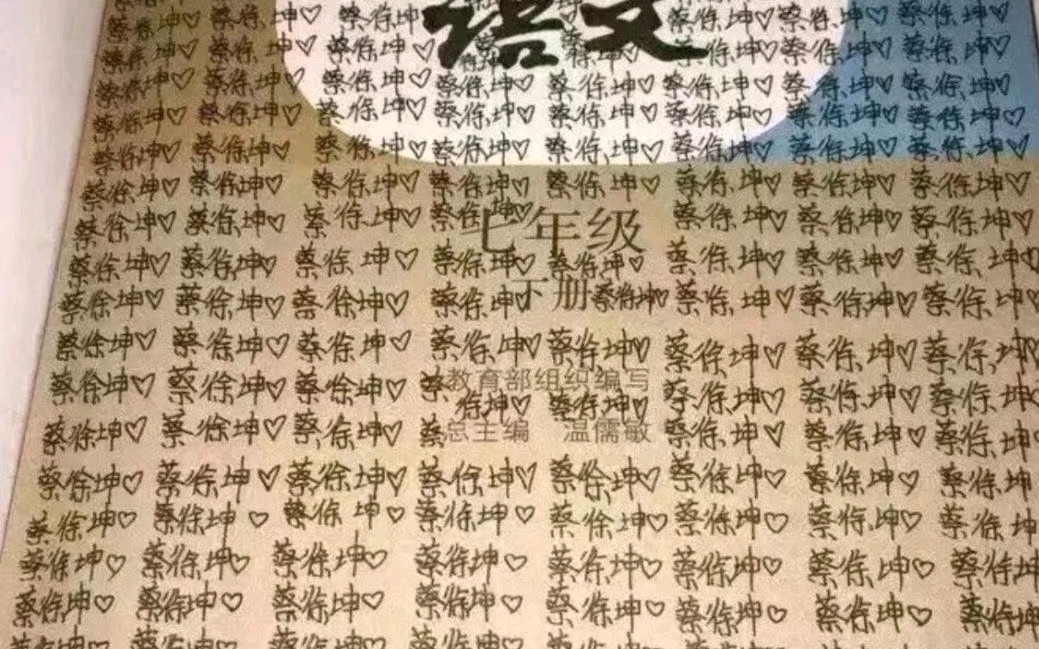 蔡徐坤♡ 蔡徐坤♡ 蔡徐坤♡ 蔡徐坤♡ 蔡徐坤♡ 蔡徐坤♡
语文
蔡徐坤♡ 蔡徐坤♡ 蔡徐坤♡ 蔡徐坤♡ 蔡徐坤♡ 蔡徐坤♡
蔡徐坤♡ 蔡徐坤♡ 蔡徐坤♡ 蔡徐坤♡ 蔡徐坤♡ 蔡徐坤♡ 蔡徐坤♡ 蔡徐坤♡
蔡徐坤♡ 蔡徐坤♡ 蔡徐坤♡ 蔡徐坤♡ 蔡徐坤♡ 蔡徐坤♡ 蔡徐坤♡ 蔡徐坤♡
蔡徐坤♡ 蔡徐坤♡ 蔡徐坤♡ 蔡徐坤♡ 蔡徐坤♡ 蔡徐坤♡ 蔡徐坤♡ 蔡徐坤♡
蔡徐坤♡ 蔡徐坤♡ 蔡徐坤♡ 蔡徐坤♡ 蔡徐坤♡ 蔡徐坤♡ 蔡徐坤♡ 蔡徐坤♡
蔡徐坤♡ 蔡徐坤♡ 蔡徐坤♡ 蔡徐坤♡ 蔡徐坤♡ 蔡徐坤♡ 蔡徐坤♡
七年级
蔡徐坤♡ 蔡徐坤♡ 蔡徐坤♡ 蔡徐坤♡ 蔡徐坤♡ 蔡徐坤♡ 蔡徐坤♡ 蔡徐坤♡
蔡徐坤♡ 蔡徐坤♡ 蔡徐坤♡ 蔡徐坤♡ 下册 蔡徐坤♡ 蔡徐坤♡ 蔡徐坤♡ 蔡徐坤♡
蔡徐坤♡ 蔡徐坤♡ 蔡徐坤♡ 蔡徐坤♡ 蔡徐坤♡ 蔡徐坤♡ 蔡徐坤♡ 蔡徐坤♡
教育部组织编写
蔡徐坤♡ 蔡徐坤♡ 蔡徐坤♡ 蔡徐坤♡ 蔡徐坤♡ 蔡徐坤♡ 蔡徐坤♡ 蔡徐坤
蔡徐坤♡ 蔡徐坤♡ 蔡徐坤♡ 蔡 总主编 温儒敏 蔡徐坤♡ 蔡徐坤♡ 蔡徐坤
蔡徐坤♡ 蔡徐坤♡ 蔡徐坤♡ 蔡徐坤♡ 蔡徐坤♡ 蔡徐坤♡ 蔡徐坤♡ 蔡徐坤
蔡徐坤♡ 蔡徐坤♡ 蔡徐坤♡ 蔡徐坤♡ 蔡徐坤♡ 蔡徐坤♡ 蔡徐坤♡ 蔡徐坤
蔡徐坤♡ 蔡徐坤♡ 蔡徐坤♡ 蔡徐坤♡ 蔡徐坤♡ 蔡徐坤♡ 蔡徐坤♡ 蔡徐坤
蔡徐坤♡ 蔡徐坤♡ 蔡徐坤♡ 蔡徐坤♡ 蔡徐坤♡ 蔡徐坤♡ 蔡徐坤♡ 蔡徐坤